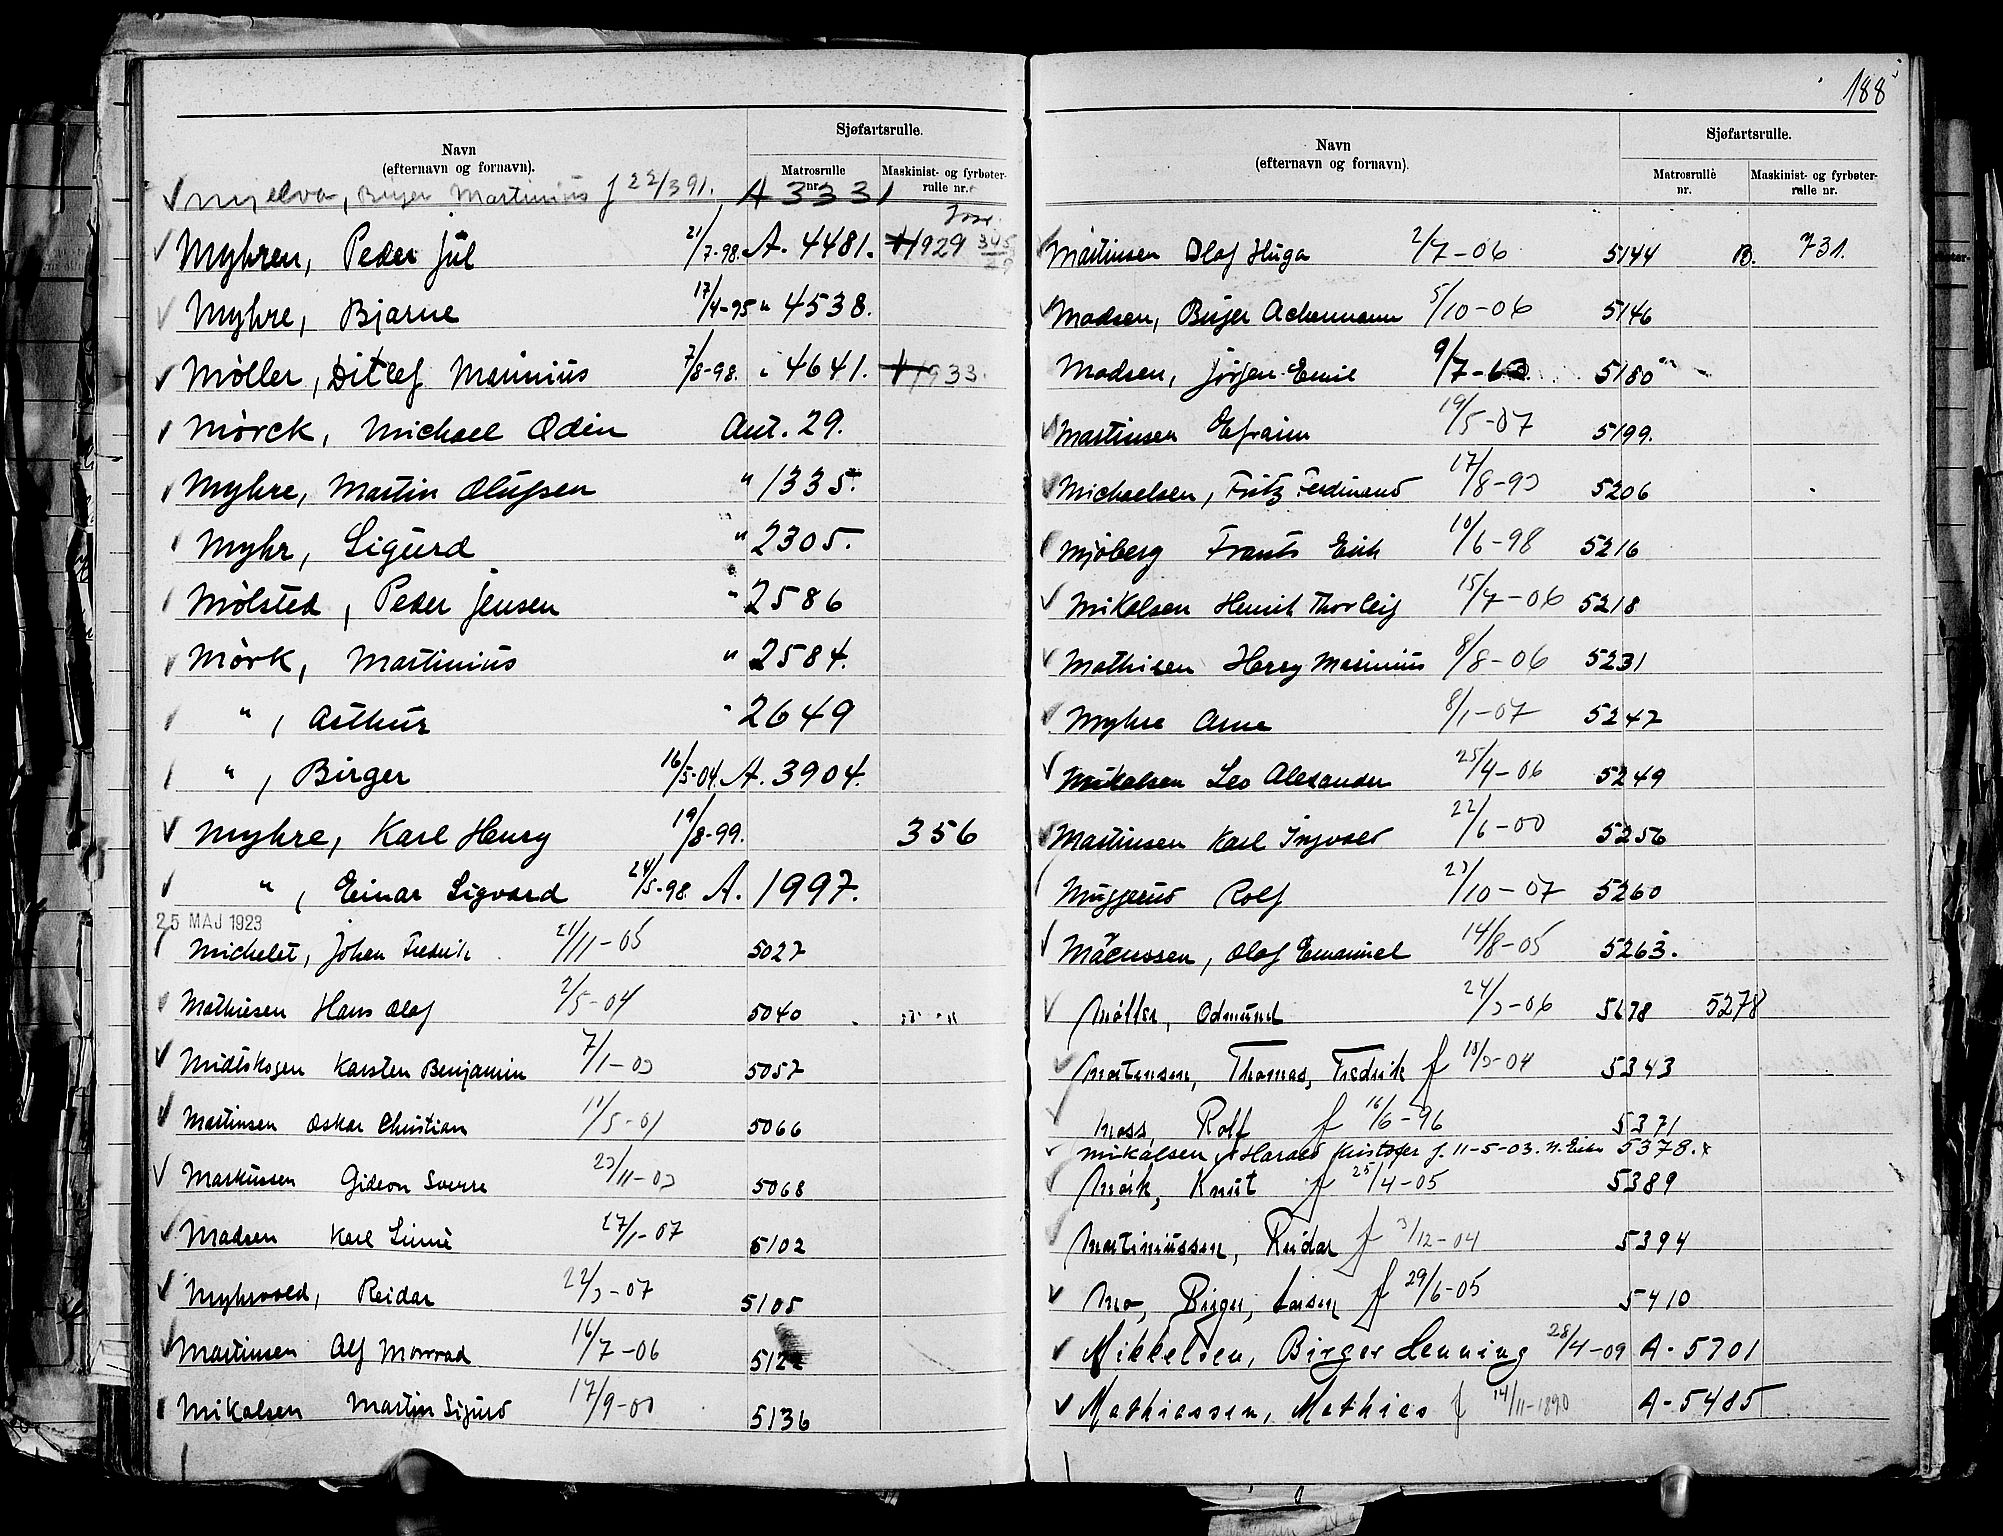 Navn
(efternavn og fornavn).
Sjøfartsrulle.
Matrosrulle nr.
Maskinist- og fyrbøter-rulle nr.
Mjelva, Birger Martinius f 22/3 91. A 3331
Myhren, Peder Jul 21/7-98. A. 4481. 1929 345/29
Myhre, Bjarne 17/4-95 " 4538.
Møller, Ditlef Marinius 7/8-98. " 4641. 1933.
Mørck, Michael Odin Ant. 29.
Myhre, Martin Olufsen " 1335.
Myhr, Sigurd " 2305.
Mølsted, Peder Jensen " 2586
Mørk, Martinius " 2584.
" , Arthur " 2649
" , Birger 16/5-04. A. 3904.
Myhre, Karl Henry 19/8-99. 356
" , Einar Sigvard 24/5-98 A. 1997.
25 MAJ 1923
Michelet, Johan Fredrik 21/11-05 5027
Mathiesen Hans Olaf 2/5-04 5040
Midtskogen Karsten Benjamin 7/1-03 5057
Martinsen Oskar Christian 11/5-01 5066
Markussen Gideon Sverre 23/11-03 5068
Madsen Karl Linné 27/1-07 5102
Myhrvold, Reidar 22/3-07 5105
Martinsen Alf Monrad 16/7-06 5122
Mikalsen Martin Sigurd 17/9-00 5136
188
Navn
(efternavn og fornavn).
Sjøfartsrulle.
Matrosrulle nr.
Maskinist- og fyrbøter-rulle nr.
Martinsen Olaf Hugo 2/7-06 5144 B. 731.
Madsen, Birger Achermann 5/10-06 5146
Madsen, Jørgen Emil 9/7-63 5180
Martinsen Efraim 19/5-07 5199.
Michaelsen, Fritz Ferdinand 17/8-93 5206
Mjøberg Frants Erik 10/6-98 5216
Mikalsen Henrik Thorleif 15/7-06 5218
Mathisen Harry Marinius 8/8-06 5231
Myhre Arne 8/1-07 5247
Mikalsen Leo Alexander 25/4-06 5249
Martinsen Karl Ingvald 22/6-00 5256
Muggerud Rolf 23/10-07 5260
Marcussen, Olaf Emanuel 14/8-05 5263.
Møller, Odmund 24/3-06 5278 5278
Mortensen, Thomas, Fredrik f 18/3-04 5343
Moss, Rolf f 16/6-96 5371
Mikalsen, Harald Kristofer f. 11-5-03. N. Eiker 5378.
Mørk, Knut f 25/4-05 5389
Martiniussen, Reidar f 3/12-04 5394
Mo, Birger, Larsen f 29/6-05 5410
Mikkelsen, Birger Henning 28/4-09 A-5701
Mathiassen, Mathias f 14/11-1890 A-5485